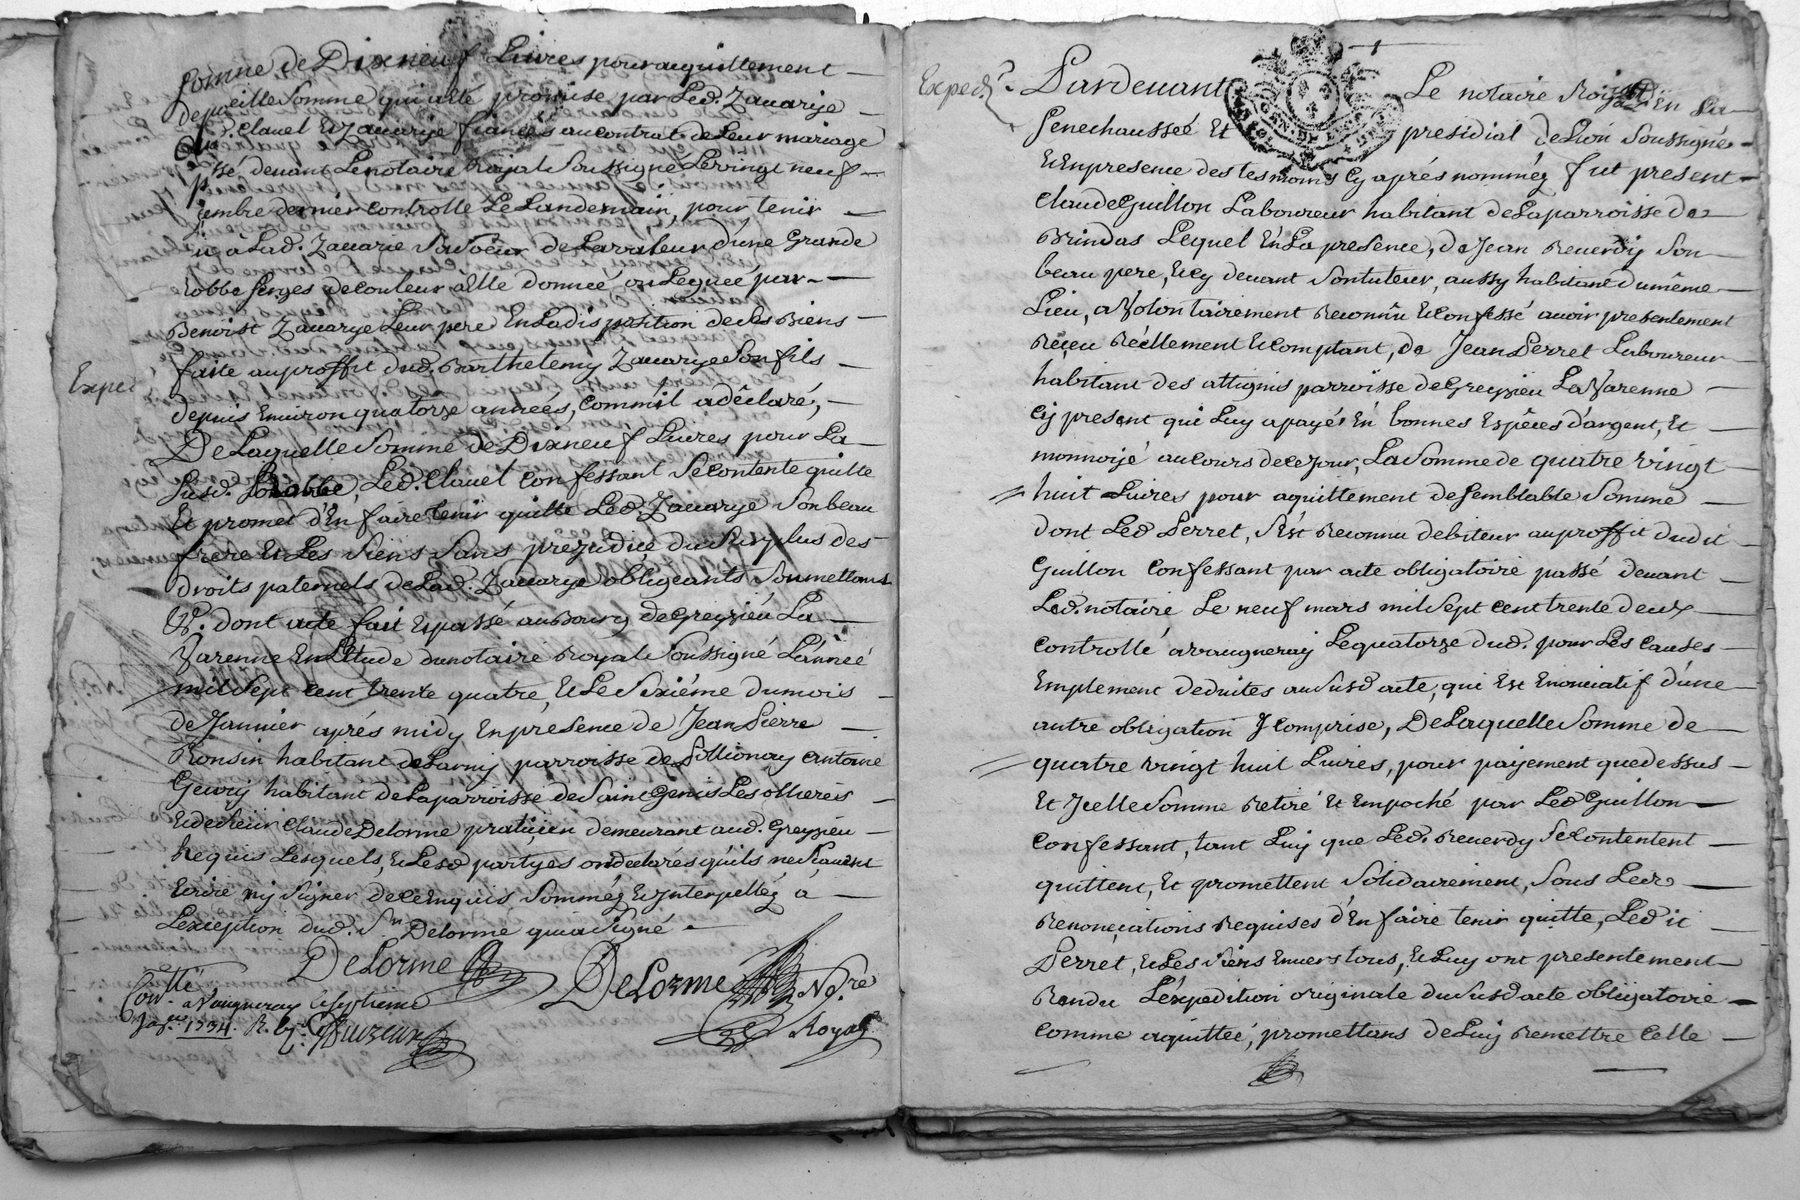 somme de Dixneuf Livres pour aquittement
de pareille somme qui a été promise par Led. Zacarye
aud. Clavel Et Zacarye fiancés au contrat de Leur mariage
passé devant Le notaire Royal Soussigné Le vingt neuf
dernier controllé Le Landemain, pour tenir
à Lad. Zacarie Sa Soeur de La valeur d'une Grande
robbe serges de couleur à Elle donnée ou Leguée par
Benoist Zacarye Leur pere En La disposition de Ses Biens
faite au proffit dud. Barthelemy Zacarye Son fils
Exped.
depuis Environ quatorze années, comm'il a déclaré,
De Laquelle Somme de Dixneuf Livres pour La
susd. Robbe, Led. Clavel confessant Se contente quitte
Et promet d'En faire tenir quitte Led. Zacarye Son beau
frere Et Les Siens Sans prejudice du Surplus des
droits paternels de Lad. Zacarye obligeants Soumettans
&. dont acte fait Et passé au Bourg de Greyzieu La
Varenne En L'Etude du notaire Royal Soussigné L'année
mil Sept cent trente quatre, Et Le Sixiéme du mois
de Janvier aprés midy En presence de Jean Pierre
Ronsin habitant de Larny parroisse de Sollionay Antoine
habitant de La parroisse de Saint Genis Les ollieres
Et de Sieur Claude Delorme praticien demeurant aud. Greyzieu
Requis Lesquels, Et Lesd. partyes ont declarés qu'ils ne Sçavent
Ecrire ny Signer de ce Enquis Somméz Et Interpelléz a
L'exception dud. Sr. Delorme qui a Signé
Delorme Delorme No.re
Royal
Con.llé a Vaugneray Le Septieme
Janv. 1734. R.
Exped.
Pardevant Le notaire Royal En La
Senechaussée Et presidial de Lion Soussigné
Et En presence des tesmoins Cy aprés nomméz fut present
Claude Guillon Laboureur habitant de La parroisse de
Brindas Lequel En La presence, de Jean Reverdy Son
beau pere, Et cy devant Son tuteur, aussy habitant du même
Lieu, a Volontairement Reconnû Et confessé avoir presentement
Reçeu Réellement Et comptant, de Jean Perret Laboureur
habitant des attignis parroisse de Greyzieu La Varenne
Cy present qui Luy a payés En bonnes Espéces d'argent, Et
monnoyé au cours de ce Jour, La Somme de quatre vingt
huit Livres pour aquittement de Semblable Somme
dont Led Perret, S'est Reconnu debiteur au proffit dudit
Guillon confessant par acte obligatoire passé devant
Led. notaire Le neuf mars mil Sept cent trente deux
controllé a vaugneray Le quatorze dud. pour Les causes
Emplement deduites au Susd acte, qui Est Enonciatif d'une
autre obligation y comprise, De Laquelle Somme de
quatre vingt huit Livres, pour payement que dessus
Et Jcelle Somme Retiré Et Empoché par Led Guillon
confessant, tant Luy que Led. Reverdy Se contentent
quittent, Et promettent Solidairement, Sous Les
Renonçiations Requises d'En faire tenir quitte, Ledit
Perret, Et Les Siens Envers tous, Et Luy ont presentement
Rendu L'éxpedition originale du Susd acte obligatoire
comme aquittée, promettans de Luy Remettre Celle